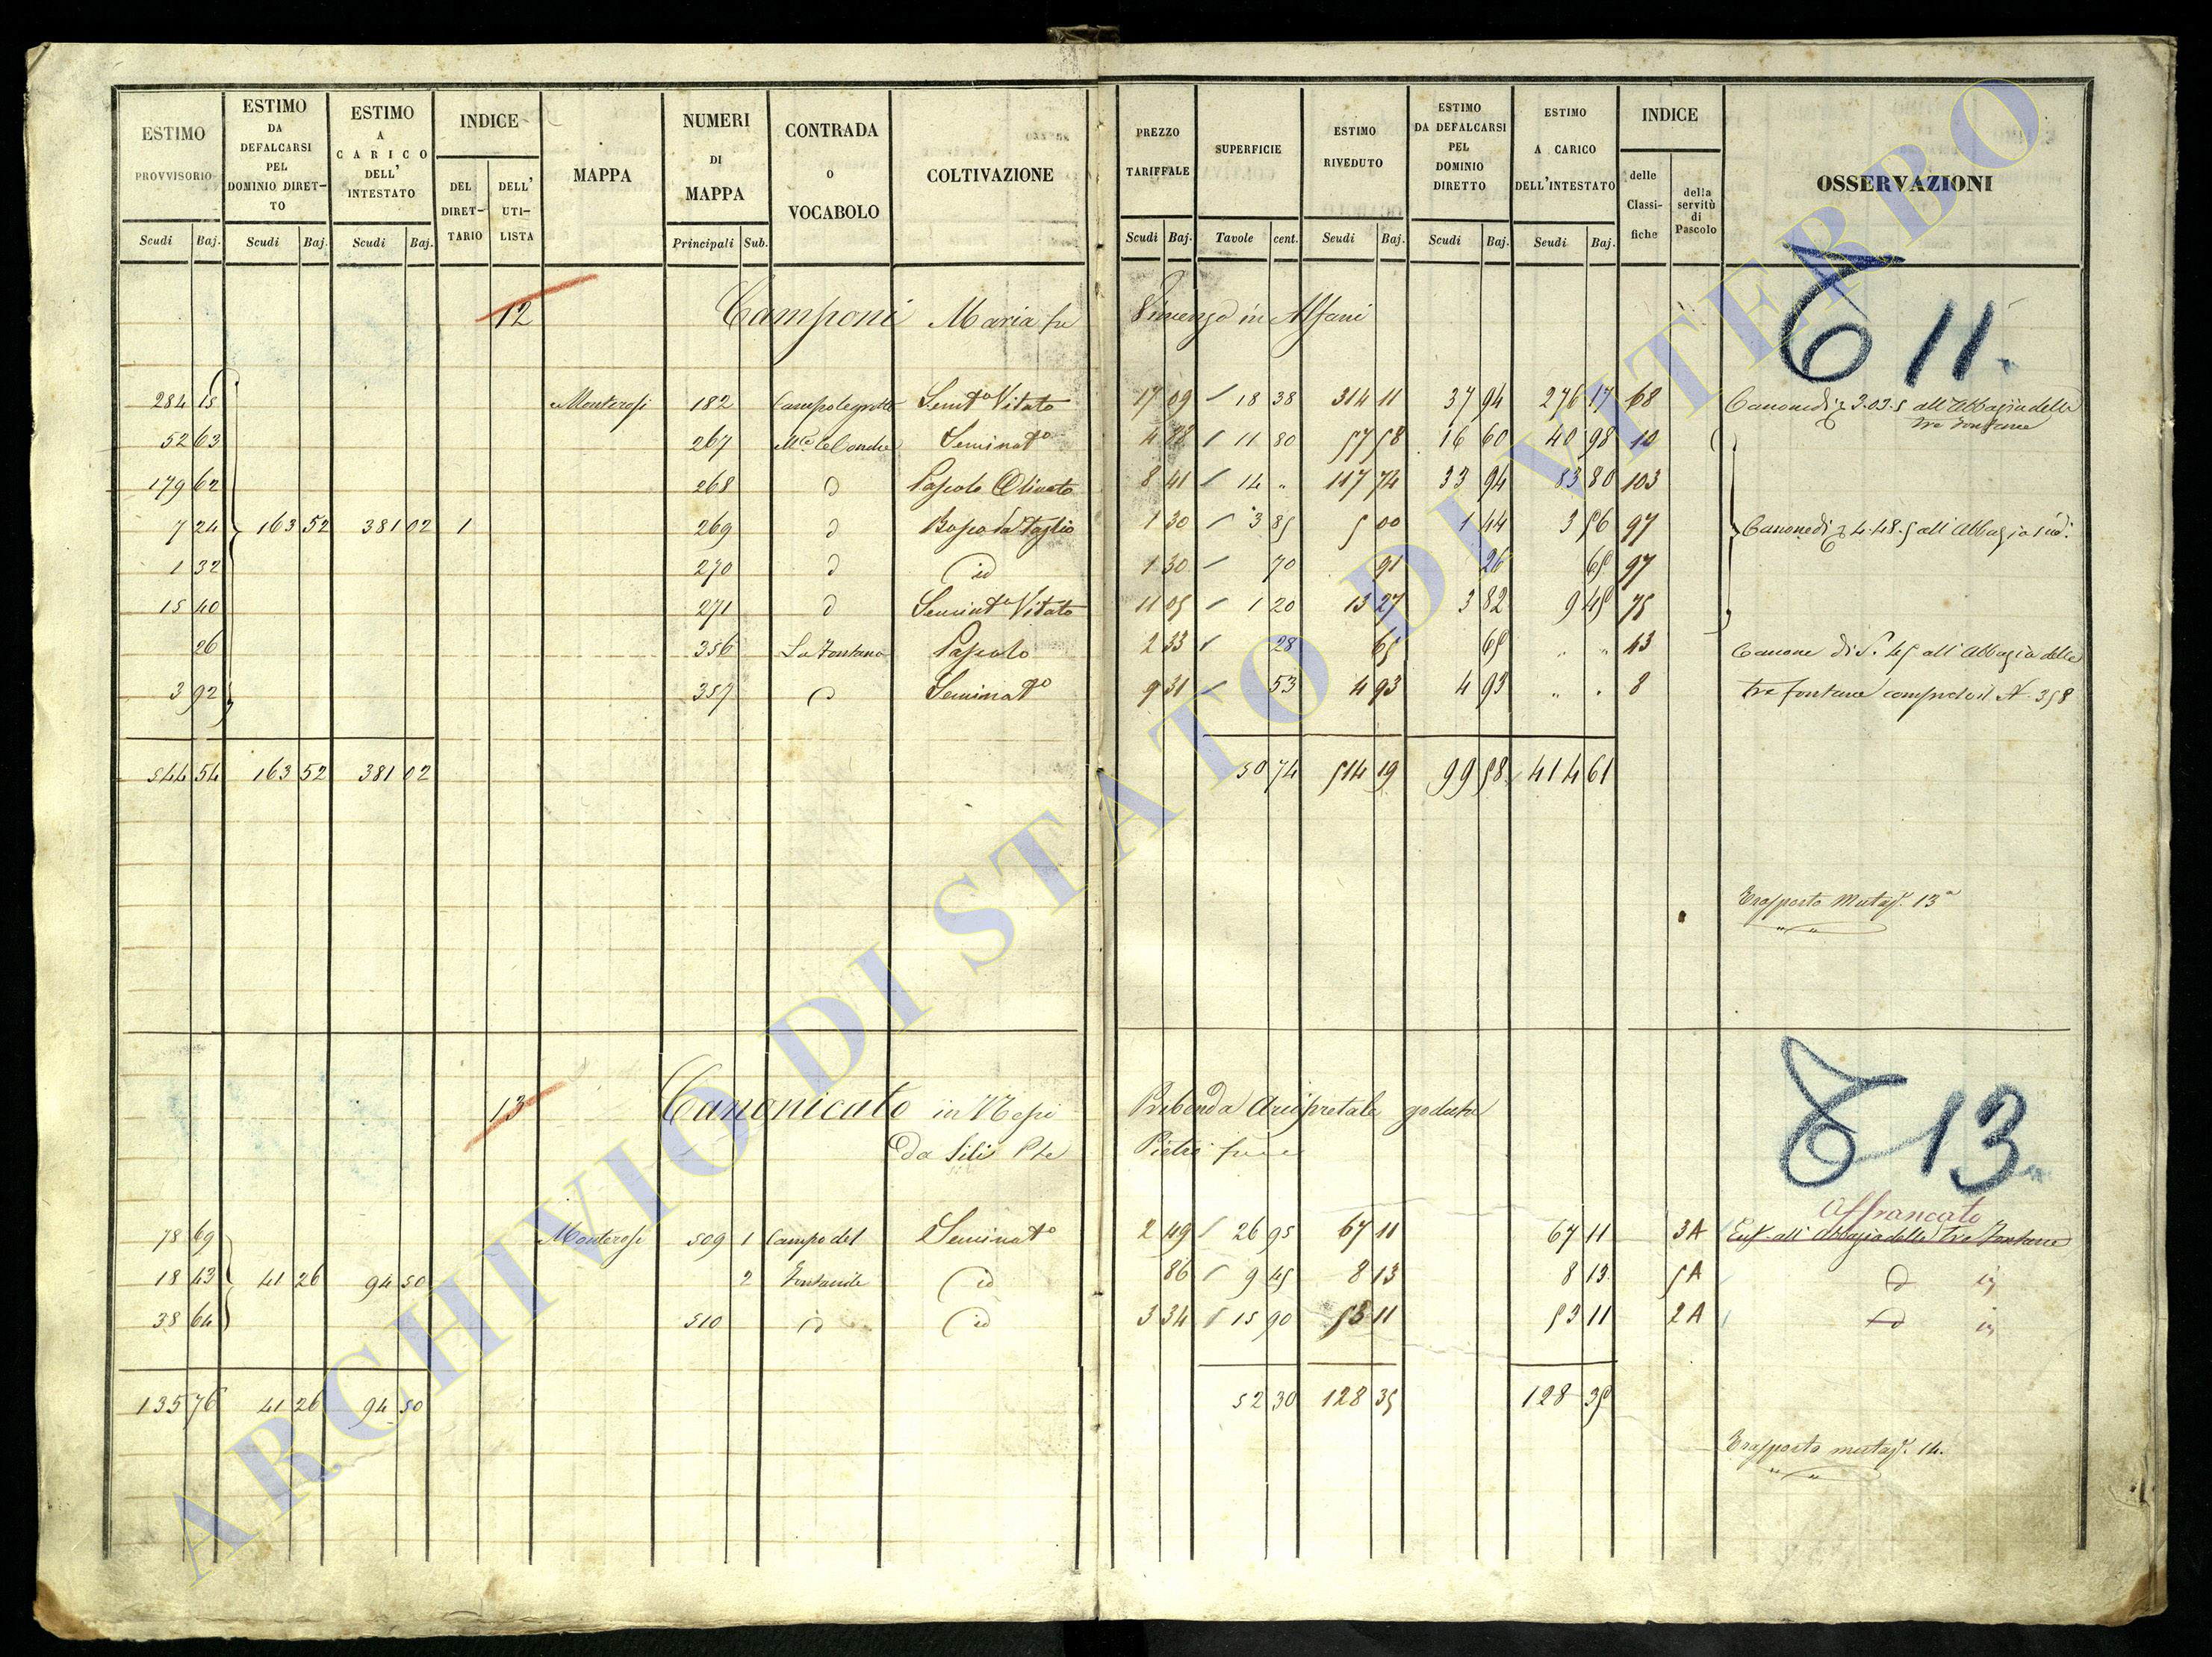 ESTIMO PROVVISORIO Scudi Baj.
ESTIMO DA DEFALCARSI PEL DOMINIO DIRET-TO Scudi Baj.
ESTIMO A CARICO DELL' INTESTATO Scudi Baj.
INDICE DEL DIRET-TARIO DELL' UTI-LISTA
MAPPA
NUMERI DI MAPPA Principali Sub.
CONTRADA O VOCABOLO
COLTIVAZIONE
PREZZO TARIFFALE Scudi Baj.
SUPERFICIE Tavole cent.
ESTIMO RIVEDUTO Scudi Baj.
ESTIMO DA DEFALCARSI PEL DOMINIO DIRETTO Scudi Baj.
ESTIMO A CARICO DELL'INTESTATO Scudi Baj.
INDICE delle Classi-fiche della servitù di Pascolo
OSSERVAZIONI
12 Camponi Maria fu Vincenzo in Alfani
11.
284 15 Monterosi 182 Semto Vitato 17 09 18 38 314 11 37 94 276 17 68 Canone di 3.03.5 all'Abbazia delle tre fontane
52 63 267 Seminato 4 88 11 80 57 58 16 60 40 98 10
179 62 268 Pascolo Olivato 8 41 14 " 117 74 33 94 83 80 103
7 24 163 52 381 02 1 269 Bosco da Taglio 1 30 3 85 5 00 1 44 3 56 97 Canone di 4.48.5 all'Abbazia sud.
1 32 270 id 1 30 70 91 26 65 97
15 40 271 Seminto Vitato 11 05 1 20 13 27 3 82 9 45 75
26 356 La Fontana Pascolo 2 33 28 65 65 " " 43 Canone di S. 45 all'Abbazia delle
3 92 357 Seminato 9 31 53 4 93 4 93 " " 8 tre fontane compreso il N. 358
544 54 163 52 381 02 50 74 514 19 99 58 414 61
Trasporto Mutaz. 13a
13 Canonicato in Nepi Prebenda Arcipretale goduta
da Sili Pte Pietro
13.
Affrancato
78 69 Monterosi 509 1 Campo del Seminato 2 49 26 95 67 11 67 11 3A Enf. all'Abbazia delle tre fontane
18 43 41 26 94 50 2 Fontanile id 86 9 45 8 13 8 13 5A
38 64 510 id 3 34 15 90 53 11 53 11 2A
135 76 41 26 94 50 52 30 128 35 128 35
Trasporto mutaz. 14.
ARCHIVIO DI STATO DI VITERBO